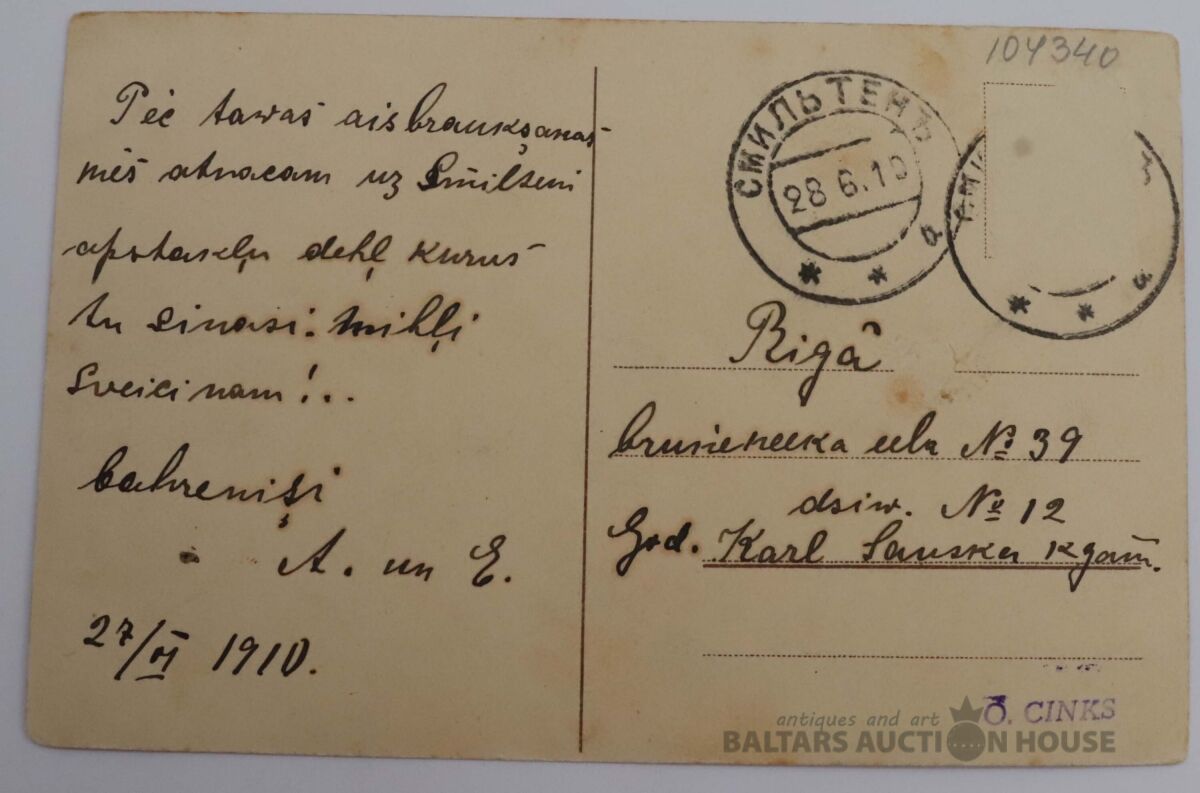 104340
Pēc tawas aisbraukšanas
mēs atnacam uz Smilteni
apstakļu dehļ kurus
tu sinasi. Mihļi
Sveicinam!..
bahrenişi
A. un E.
27/VI 1910.
СМИЛЬТЕНЪ
28 6.10
а
СМИ
а
Rigâ
ulа № 39
dsiw. № 12
God. Karl kgam.
O. CINKS
antiques and art
BALTARS AUCTION HOUSE